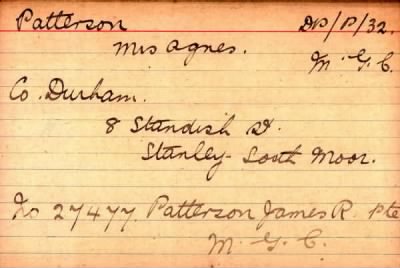 Patterson DP/P/32.
Mrs Agnes. M. G. C.
Co. Durham.
8 Standish St.
Stanley - South Moor.
No 27477. Patterson James R. Pte
M. G. C.